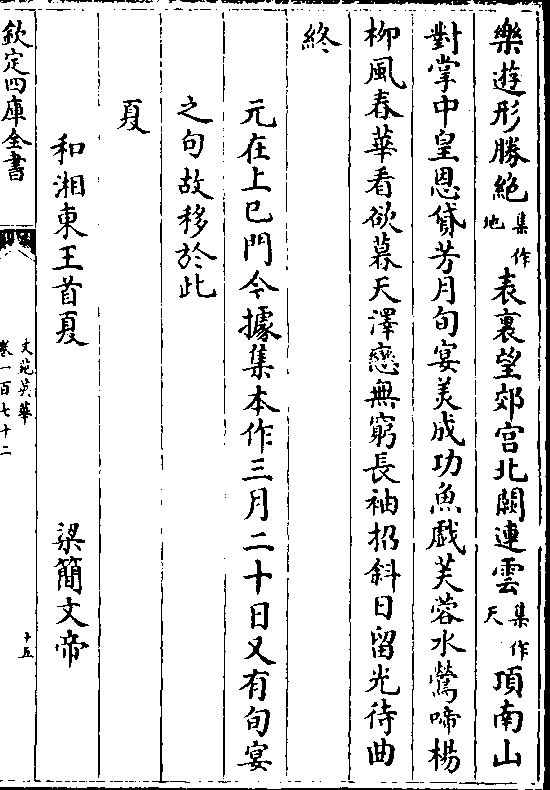 樂遊形勝絶集作地表裏望郊宫北闕連雲集作天項南山
對掌中皇恩貸芳月旬宴美成功魚戲芙蓉水鶯啼楊
柳風春華看欲暮天澤戀無窮長袖招斜日留光待曲
終
元在上巳門今據集本作三月二十日又有旬宴
之句故移於此
夏
和湘東王首夏 梁簡文帝
欽定四庫全書
文苑英華
卷一百七十二
十五